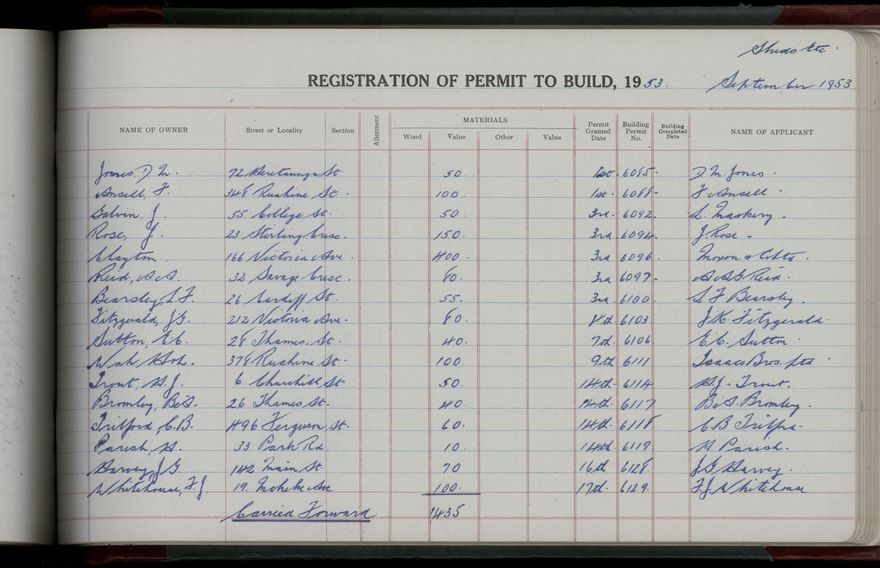 Sheds etc.
REGISTRATION OF PERMIT TO BUILD, 1953.
September 1953
NAME OF OWNER Street or Locality Section Allotment MATERIALS Wood Value Other Value Permit Granted Date Building Permit No. Building Completed Date NAME OF APPLICANT
Jones, D. M. 72 Heretaunga St 50. 1st. 6085 D. M. Jones.
Ansell, F. 348 Ruahine St. 100. 1st. 6088 F. Ansell.
Galvin, J. 55 College St. 50. 3rd. 6092
Rose, J. 23 Stirling Cresc. 150. 3rd 6094 J. Rose.
Clayton. 166 Victoria Ave. 400. 3rd 6096
Reid, A. S. 32 Savage Cresc. 80. 3rd 6097 Reid.
Bearsley, L. F. 26 Cardiff St. 55. 3rd 6100 L F Bearsley.
Fitzgerald, J. 212 Victoria Ave. 80. 6103 J. K. Fitzgerald.
Sutton, C. C. 28 Thames St. 40. 7th. 6106 C. C. Sutton.
Nash, 379 Ruahine St. 100. 9th 6111 Isaacs Bros. Ltd
Trout, H. J. 6. Churchill St. 50. 14th. 6114 H. J. Trout.
Bromley, B. S. 26 Thames St. 40. 14th. 6117 B. S. Bromley.
Tritford C. B. 496 Ferguson St. 60. 14th. 6118 C B Tritford.
Parish, H. 33 Park Rd. 10. 14th. 6119 H Parish.
Harvey, J G 142 Main St. 70 16th 6128. J. G Harvey.
Whitehouse, F. J. 19. Moheke Ave 100. 17th. 6129. F. J. Whitehouse
Carried Forward 1435